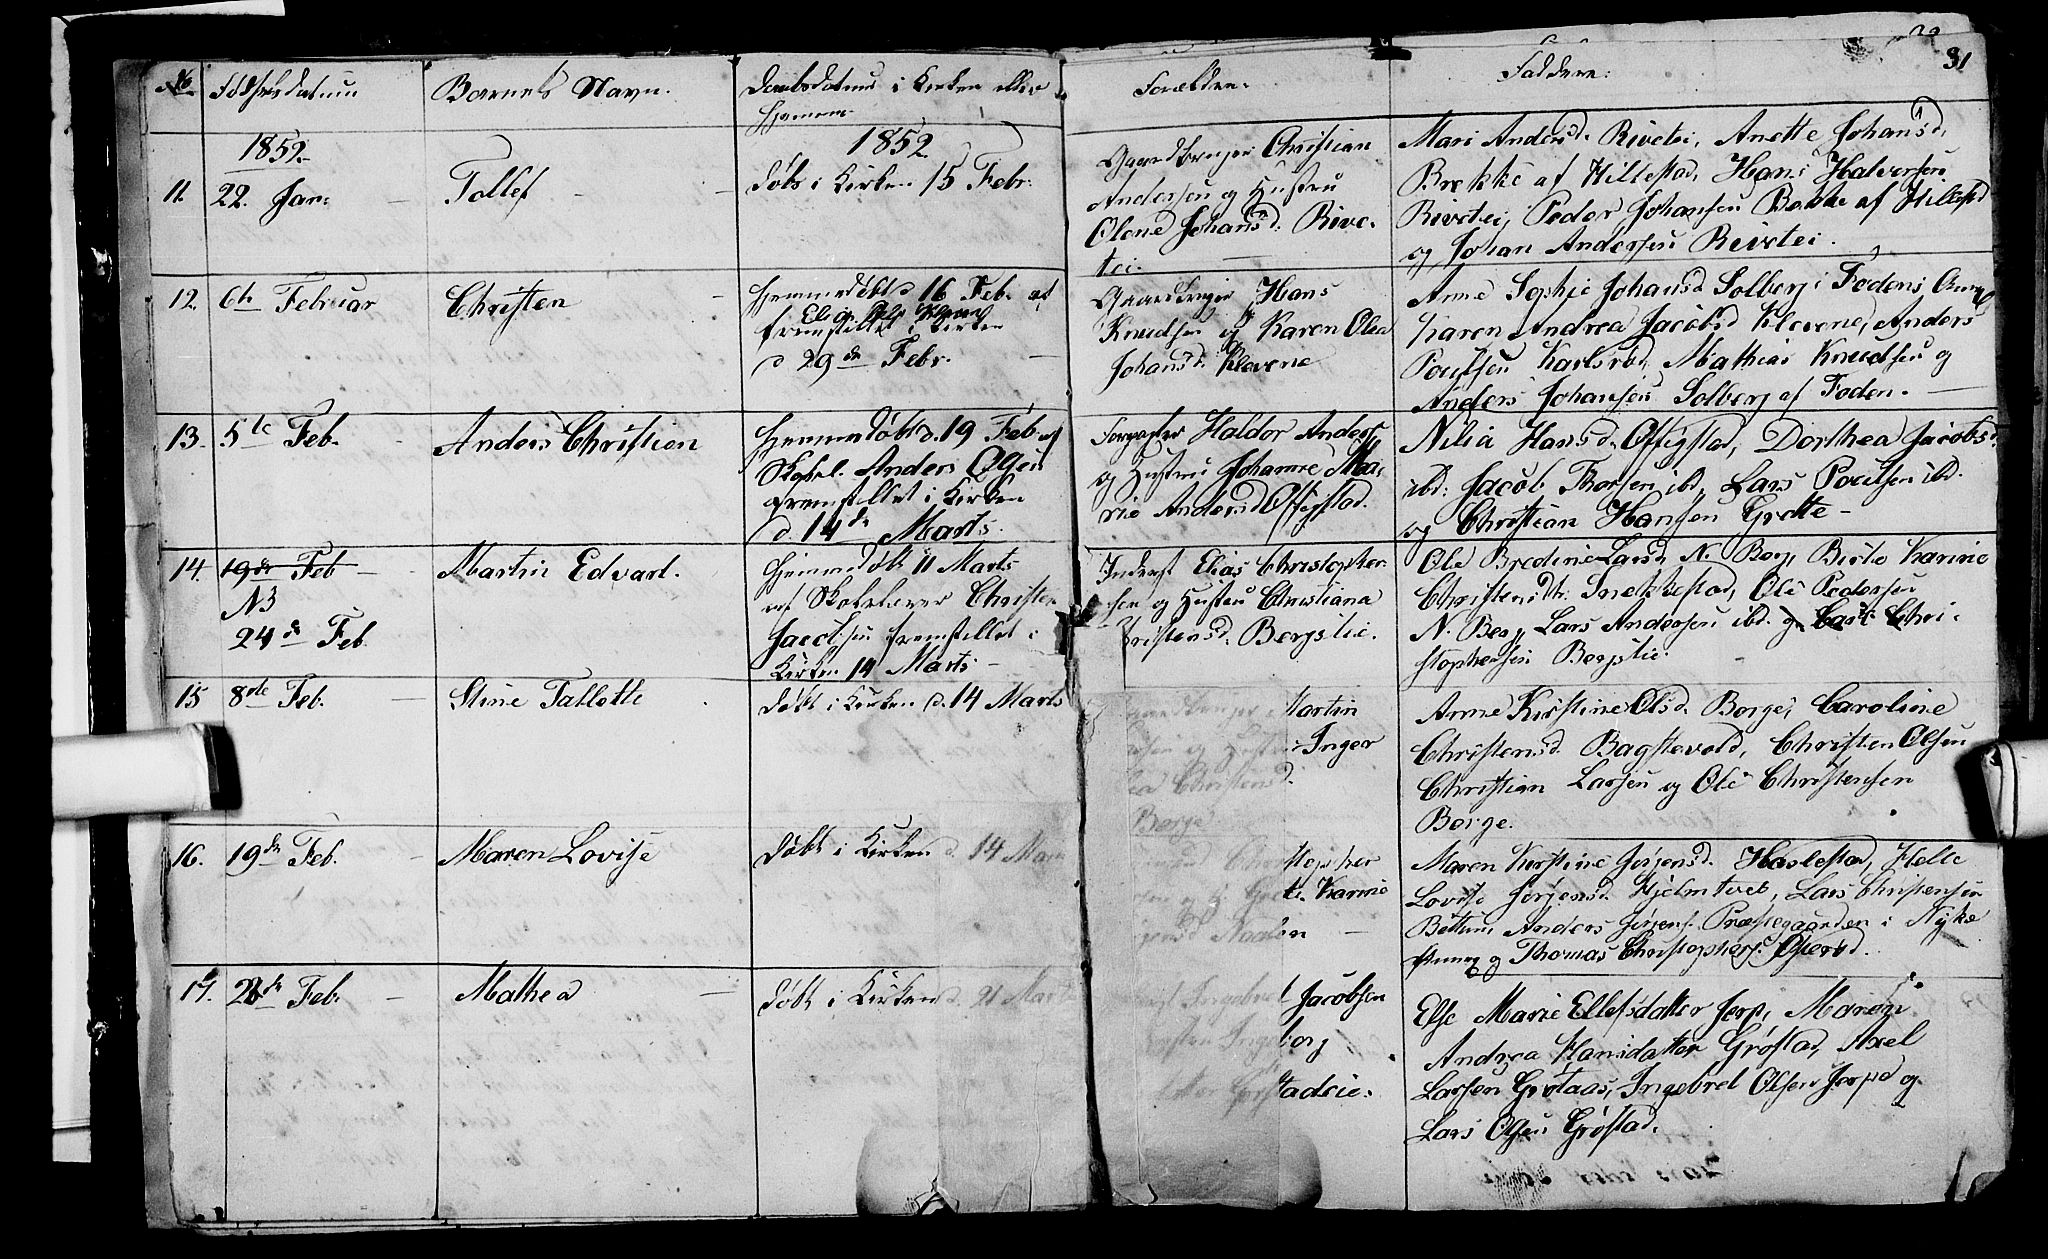 31
No Fødselsdatum Barnets Navn. Daabsdatum i Kirken eller
Hjemme
Forældre: Faddere:
1852. 1852
11. 22. Jan: Tollef Døbt i Kirken 15 Febr.
Gaardbruger Christian
Andersen og Hustru
Olene Johansd. Rive-
tei.
Mari Andersd. Rivetei, Anette Johansd.
Brekke af Hillestad, Hans Halvorsen
Rivetei, Peder Johansen Bekke af Hillestd
og Johan Andersen Rivetei.
12. 6te Februar Christen Hjemmedøbt d 16 Feb. af
fremstillet i Kirken
d 29de Febr.
Gaardbruger Hans
Knudsen og Karen Olea
Johansd. Klevene
Anne Sophie Johansd Solberg i Foden
Karen Andrea Jacobsd Klevene, Anders
Poulsen Karlsrød, Mathias Knudsen og
Anders Johansen Solberg af Foden.
13. 5te Feb. Anders Christian Hjemmedøbt d. 19 Feb af
Skolel. Anders Olsen
fremstillet i Kirken
d 14de Marts.
Forpagter Haldor Anders
og Hustru Johanne Ma-
rie Andersd Offigstad.
Nilia Hansd. Offigstad, Dorthea Jacobsd.
ibd: Jacob Thorsen ibd, Lars Poulsen ibd.
og Christian Hansen Grette
14. 19de Feb Martin Edvart. Hjemmedøbt 11 Marts
NB af Skolelærer Christen
24de Feb. Jacobsen fremstillet i
Kirken 14 Marts
Inderst Elias Christopher-
sen og Hustru Christiana
Christensd. Bergslie.
Ole Bredine Larsd. N. Berg, Birte Karine
Christensdtr. Snekkestad, Ole Pedersen
N. Berg, Lars Andersen ibd. og Chri-
stophersen Bergslie.
15 8de Feb. Stine Tallette Døbt i Kirken d. 14 Marts
Gaardbruger Martin
og Hustru Inger
Christensd.
Borge.
Anne Kirstine Olsd. Borge, Caroline
Christensd. Bagstevold, Christen Olsen
Christian Larsen og Ole Christensen
Borge.
16. 19de Feb. Maren Lovise Døbt i Kirken d. 14 Mar
stopher
Karine
Maren Kirstine Jørjensd. Haslestad, Helle
Lovise Jørjensd. Hjelmtvet, Lars Christensen
Bettum, Anders Jørjens. Præstegaarden i Nyke
og Thomas Christophers. Osterød.
17. 28de Feb. Mathea Døbt i Kirken d. 21 Mart
Ingebret Jacobsen
Ingeborg
Else Marie Ellefsdatter Jerp, Maren
Andrea Hansdatter Grøstad, Axel
Larsen Grøtaas, Ingebret Olsen Jerpe og
Lars Olsen Grøstad.